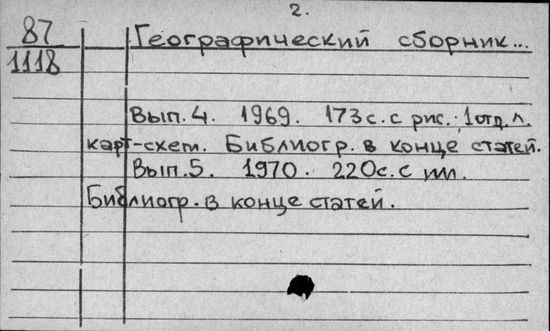 2.
87
1118
Географический сборник...
Вып. 4. 1969. 173 с. с рис.; 1 отд. л.
карт-схем. Библиогр. в конце статей.
Вып. 5. 1970. 220 с. с ил.
Библиогр. в конце статей.